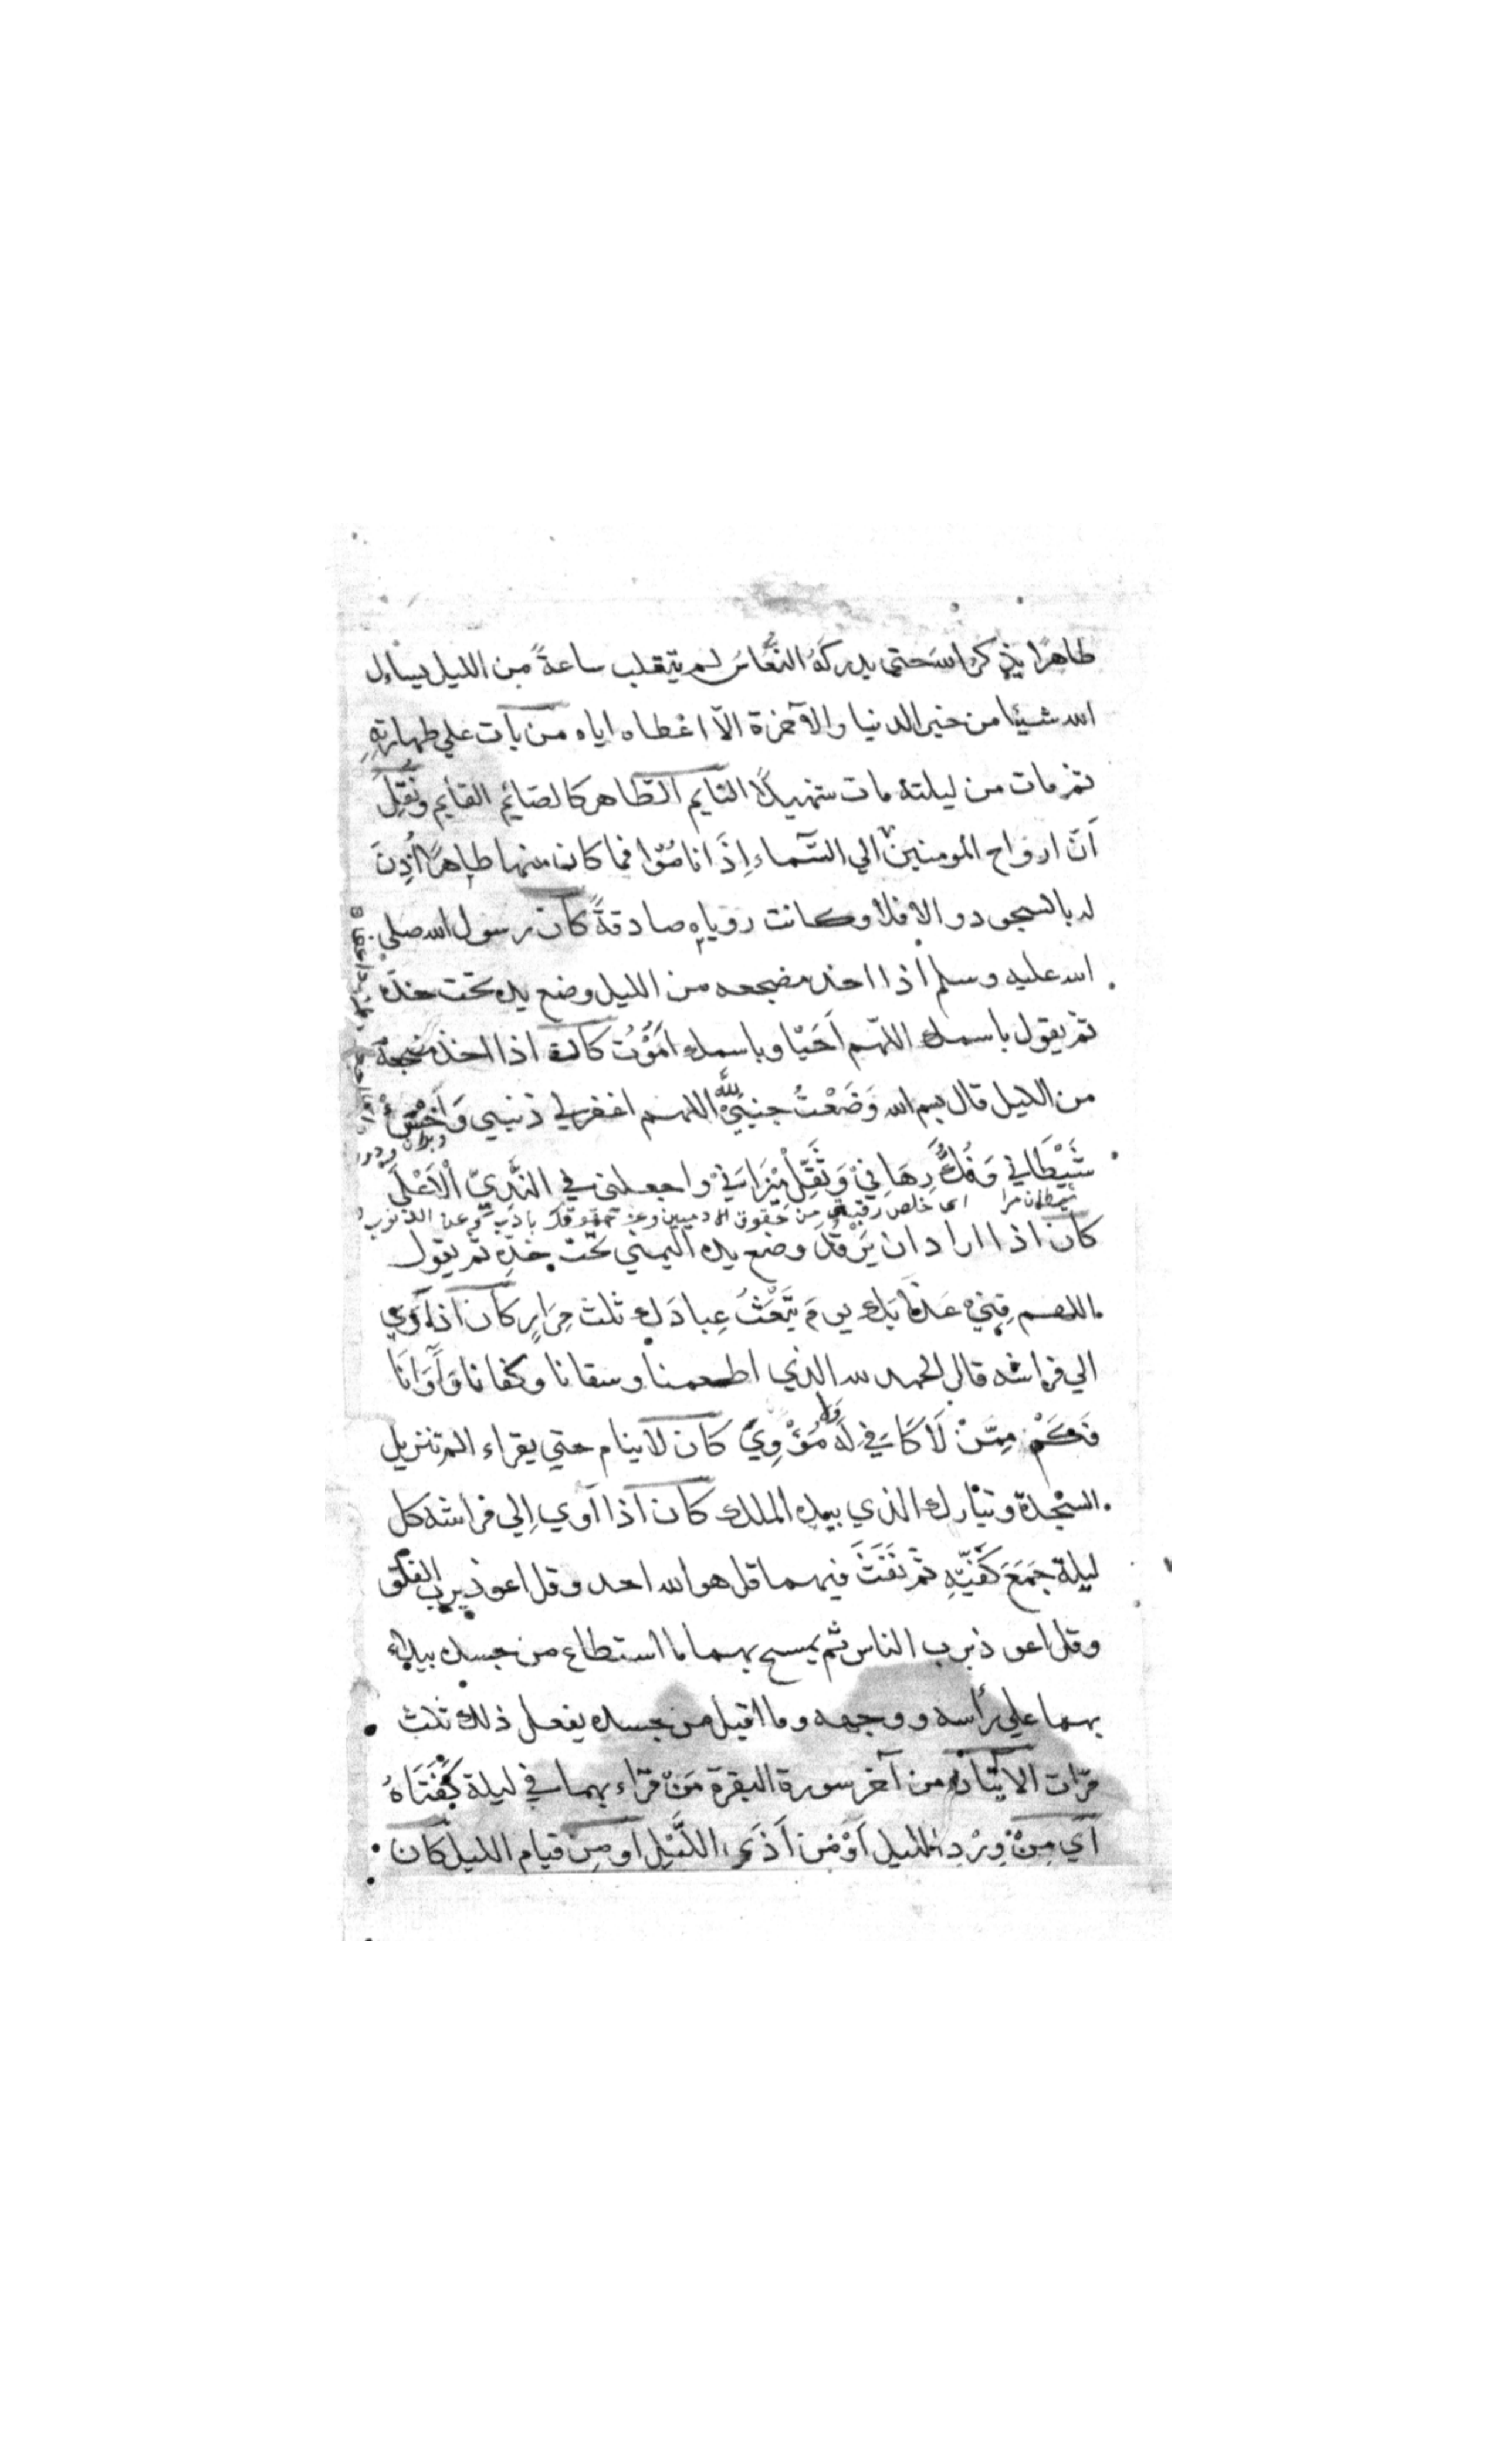 طاهرًا يذكر الله حتى يدركَهُ النُّعَاسُ لم يتقلب ساعةً من الليل يساءل
الله شيئا من خير الدنيا والآخرة الّا اعْطاه اياه من بات علي طهارتِهِ
ثم مات من ليلته مات شهيدًا النايم الطّاهر كالصّايِم القايم ونُقِلَ
اَنّ ارواح المومنين الي السّماء اِذَا نامُوْا فما كان منها طاهرًا اُذِنَ
له بالسجود والا فلا وكانت روياه صادقةً كان رسول الله صلي
الله عليه وسلم اذا اخذ مضجعه من الليل وضع يده تحت خده
ثم يقول باسمك اللّهم اَحَيَا وباسمك اَمُوْتُ كان اذا اخذ مضجعه
من الليل قال بسم الله وَضَعْتُ جنبِيْ لله اللهم اغفر لي ذنبي وَاَخْسِئْ
شَيْطَانِي وَفُكَّ رِهَانِيْ وَثَقِّلْ مِيْزَانِيْ واجعلني في النَّدِيّ الْاَعْلَي
شيطان مرا اى خلص رقبتي من حقوق الادميين وعن الذنوب
كان اذا اراد ان يَرْقُدَ وضع يده اليمني تحت خدّهِ ثم يقول
اللهم قِنِيْ عَذَابَك يومَ تَبْعَثُ عِبادَك ثلث مِرَارٍ كان اذا آوَي
الي فراشه قال الحمد لله الذي اطعمنا وسقانا وكفانا وَآوَانَا
فَكَمْ مِمَّنْ لَا كَافِيَ لَهُ وَلَا مُؤْوِيَ كان لا ينام حتي يقراء الم تنزيل
السجْدة وتبارك الذي بيده الملك كان اذا آوي اِلي فراشه كل
ليلة جَمَعَ كَفَّيْهِ ثم نَفَثَ فيهما قل هو الله احد وقل اعوذ برب الفلق
وقل اعوذ برب الناس ثم يمسح بهما ما استطاع من جسده يبداء
بهما علي رأسه ووجهه وما اقبل من جسده يفعل ذلك ثلث
مرّات الآيتان من آخر سورة البقرة مَنْ قراء بهما في ليلة كَفَتَاهُ
اَي مِنْ وِرْدِ الليل اَوْ مِن اَذَي اللَّيْلِ او مِن قيام الليل كان